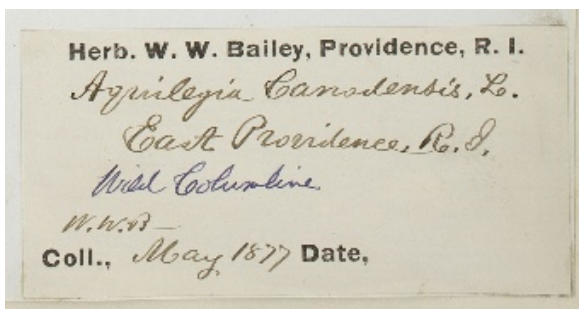 Herb. W. W. Bailey, Providence, R. I.
Aquilegia Canadensis, L.
East Providence, R. I.
Wild Columbine
W. W. B—
Coll., May 1877 Date,